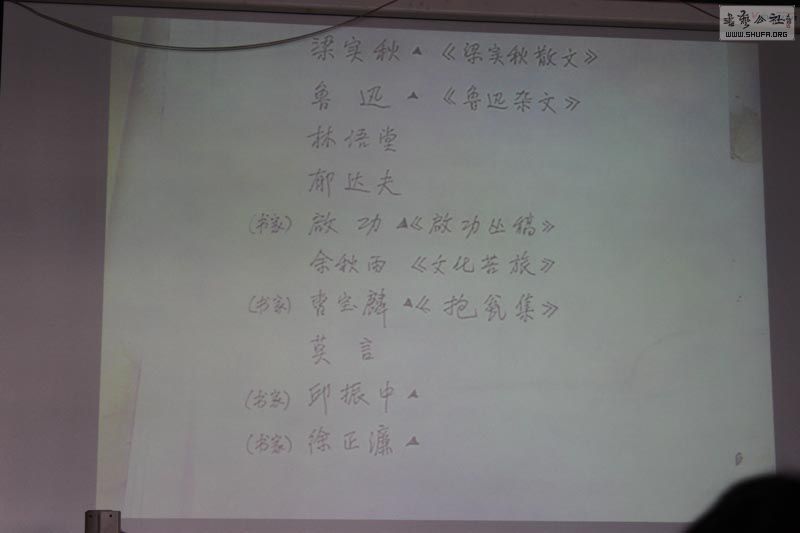 书艺公社
WWW.SHUFA.ORG
梁实秋▲《梁实秋散文》
鲁迅▲《鲁迅杂文》
林语堂
郁达夫
(书家) 啟功▲《啟功丛稿》
余秋雨《文化苦旅》
(书家) 曹宝麟▲《抱瓮集》
莫言
(书家) 邱振中▲
(书家) 徐正濂▲